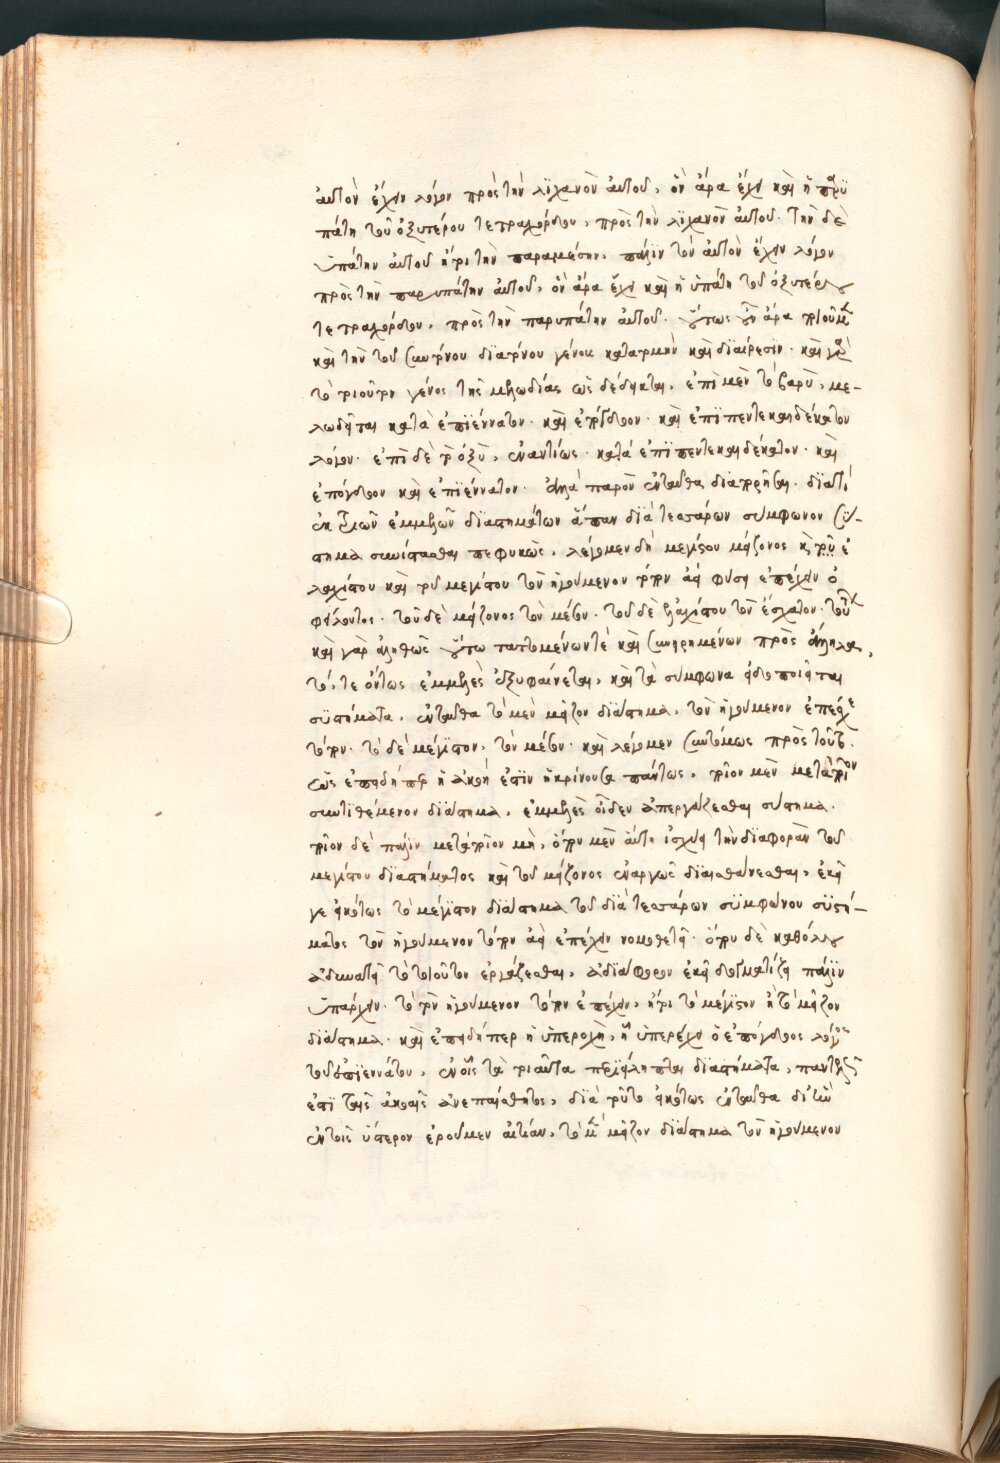 αὐτὸν ἔχειν λόγον πρὸς τὴν λϊχανὸν αὐτοῦ, ὃν ἄρα ἔχει καὶ ἡ παρϋ
πάτη τοῦ ὀξυτέρου τετραχόρδου, πρὸς τὴν λϊχανὸν αὐτοῦ. τὴν δὲ
ὑπάτην αὐτοῦ ἤτοι τὴν παραμέσην, πάλϊν τὸν αὐτὸν ἔχειν λόγον
πρὸς τὴν παρυπάτην αὐτοῦ, ὃν ἄρα ἔχει καὶ ἡ ὑπάτη τοῦ ὀξυτέρου
τετραχόρδου, πρὸς τὴν παρυπάτην αὐτοῦ. οὕτως οὖν ἄρα ποιοῦμεν
καὶ τὴν τοῦ συντόνου δϊατόνου γένους κατατομὴν καὶ δϊαίρεσϊν. καὶ γὰρ
τὸ τοιοῦτον γένος τῆς μελωδίας ὡς δέδεικται, ἐπὶ μὲν τὸ βαρὺ, με-
λωδεῖται κατὰ ἐπϊέννατον. καὶ ἐπόγδοον. καὶ ἐπϊπεντεκαιδέκατον
λόγον. ἐπὶ δὲ τὸ ὀξὺ, ἐναντίως. κατὰ ἐπϊπεντεκαιδέκατον. καὶ
ἐπόγδοον καὶ ἐπϊέννατον. ἀλλὰ παρὸν ἐνταῦθα δϊαπορεῖται. δϊατί
ἐκ τριῶν ἐμμελῶν δϊαστημάτων ἅπαν δϊὰ τεσσάρων σύμφωνον σύ-
στημα συνίστασθαι πεφυκὼς, λέγομεν δὴ μεγίστου μείζονος καὶ τοῦ ἐ
λαχίστου καὶ τοῦ μεγίστου τὸν ἡγούμενον τόπον ἀεὶ φύσει ἐπέχειν ὀ
φείλοντος. τοῦ δὲ μείζονος τὸν μέσον. τοῦ δὲ ἐλαχίστου τὸν ἔσχατον.
καὶ γὰρ ἀληθῶς οὕτω ταττομένων τὲ καὶ συνῃρημένων πρὸς ἄλληλα,
τό, τε ὄντως ἐμμελὲς ἐξυφαίνεται, καὶ τὰ σύμφωνα εἰδοποιεῖται
σϋστήματα. ἐνταῦθα τὸ μὲν μεῖζον δϊάστημα, τὸν ἡγούμενον ἐπέχει
τόπον. τὸ δὲ μέγϊστον, τὸν μέσον. καὶ λέγομεν συντόμως πρὸς τοῦτο.
ὡς ἐπειδήπερ ἡ ἀκοὴ ἐστὶν ἡ κρίνουσα πάντως, ποῖον μὲν μετὰ ποῖον
συντϊθέμενον δϊάστημα, ἐμμελὲς οἶδεν ἀπεργάζεσθαι σύστημα.
ποῖον δὲ πάλϊν μετὰ ποῖον μὴ, ὅπου μὲν αὕτη ἰσχύει τὴν δϊαφορὰν τοῦ
μεγίστου δϊαστήματος καὶ τοῦ μείζονος ἐναργῶς δϊαισθάνεσθαι, ἐκεῖ
γε εἰκότως τὸ μέγϊστον δϊάστημα τοῦ δϊὰ τεσσάρων σϋμφώνου σϋστή-
ματος τὸν ἡγούμενον τόπον ἀεὶ ἐπέχειν νομοθετεῖ. ὅπου δὲ καθόλου
ἀδυνατεῖ τὸ τοιοῦτον ἐργάζεσθαι, ἀδϊάφορον ἐκεῖ δογματίζει πάλϊν
ὑπάρχειν. τὸ τὸν ἡγούμενον τόπον ἐπέχειν, ἤτοι τὸ μέγϊστον ἢ τὸ μεῖζον
δϊάστημα. καὶ ἐπειδήπερ ἡ ὑπεροχὴ, ᾗ ὑπερέχει ὁ ἐπόγδοος λόγος
τοῦ ἐπϊεννάτου, ἐν οἷς τὰ τοιαῦτα περϊείληπται δϊαστήματα, παντελῶς
ἐπὶ ταῖς ἀκοαῖς ἀνεπαίσθητος, δϊὰ τοῦτο εἰκότως ἐνταῦθα δι' ἣν
ἐν τοῖς ὕστερον ἐροῦμεν αἰτίαν, τὸ μὲν μεῖζον δϊάστημα τὸν ἡγούμενον